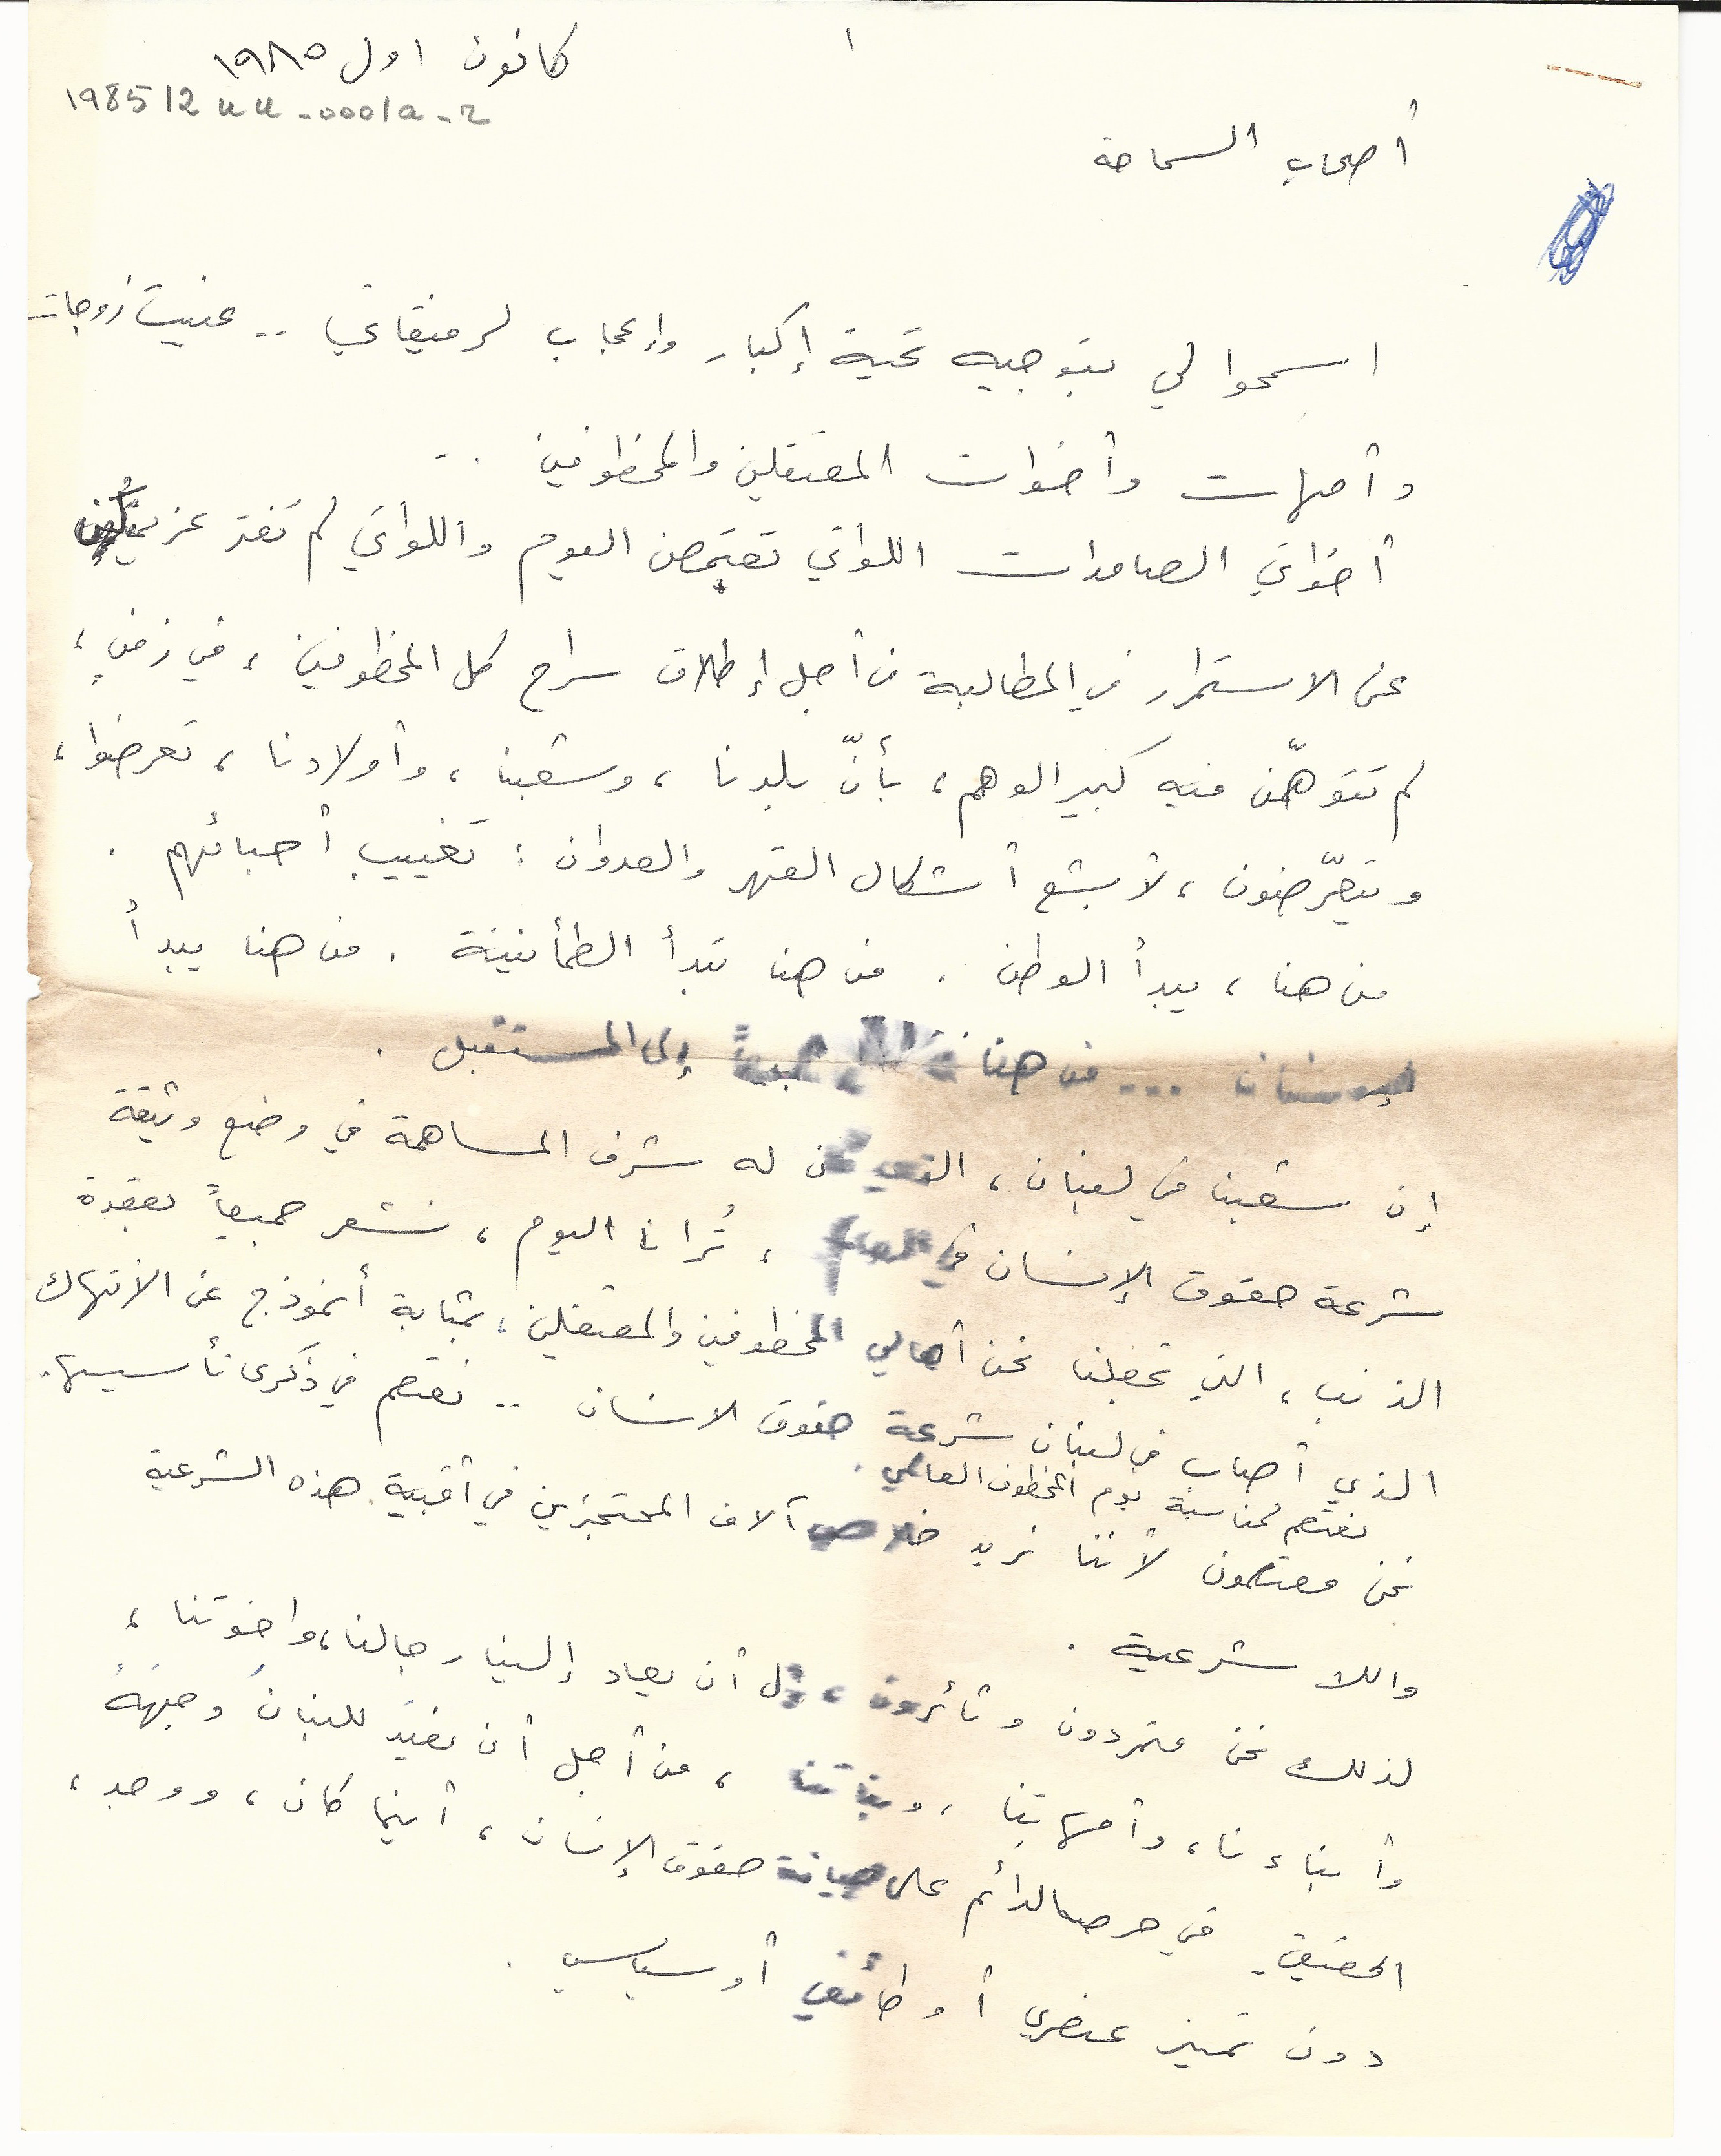 ١
كانون اول ١٩٨٥
198512uu-0001a-r
أصحاب السماحة
اسمحوا لي بتوجيه تحية إكبار وإعجاب لرفيقاتي .. عنيت زوجات
وأمهات وأخوات المعتقلين والمخطوفين ..
أخواتي الصامدات اللواتي تعتصمن اليوم واللواتي لم تفتر عزيمتكن
عن الاستمرار في المطالبة من أجل إطلاق سراح كل المخطوفين، في زمنٍ،
لم تتوهّمن فيه كبير الوهم، بأنّ بلدنا، وشعبنا، وأولادنا، تعرضوا،
ويتعرّضون، لأبشع أشكال القهر والعدوان : تغييب أحبائهم .
من هنا، يبدأ الوطن . من هنا تبدأ الطمأنينة . من هنا يبدأ
الإنسان ... من هنا جميعاً إلى المستقبل .
إن شعبنا في لبنان، الذي كان له شرف المساهمة في وضع وثيقة
شرعة حقوق الإنسان في العالم، تُرانا اليوم، نشعر جميعاً بعقدة
الذنب، التي تجعلنا نحن أهالي المخطوفين والمعتقلين، بمثابة أنموذج عن الانتهاك
الذي أصاب في لبنان شرعة حقوق الانسان .. نعتصم في ذكرى تأسيسها.
نعتصم لمناسبة يوم المخطوف العالمي .
نحن معتصمون لأننا نريد خلاص آلاف المحتجزين في أقبية هذه الشرعية
واللا شرعية .
لذلك نحن متمردون وثائرون، أن يعاد إلينا رجالنا، واخوتنا،
وأبناءنا، وأمهاتنا، وبناتنا، من أجل أن نعيد للبنان وجهَهُ
الحقيقي في حرصه الدائم على صيانة حقوق الإنسان، أينما كان، ووجد،
دون تمييز عنصري أو طائفي أو سياسي .